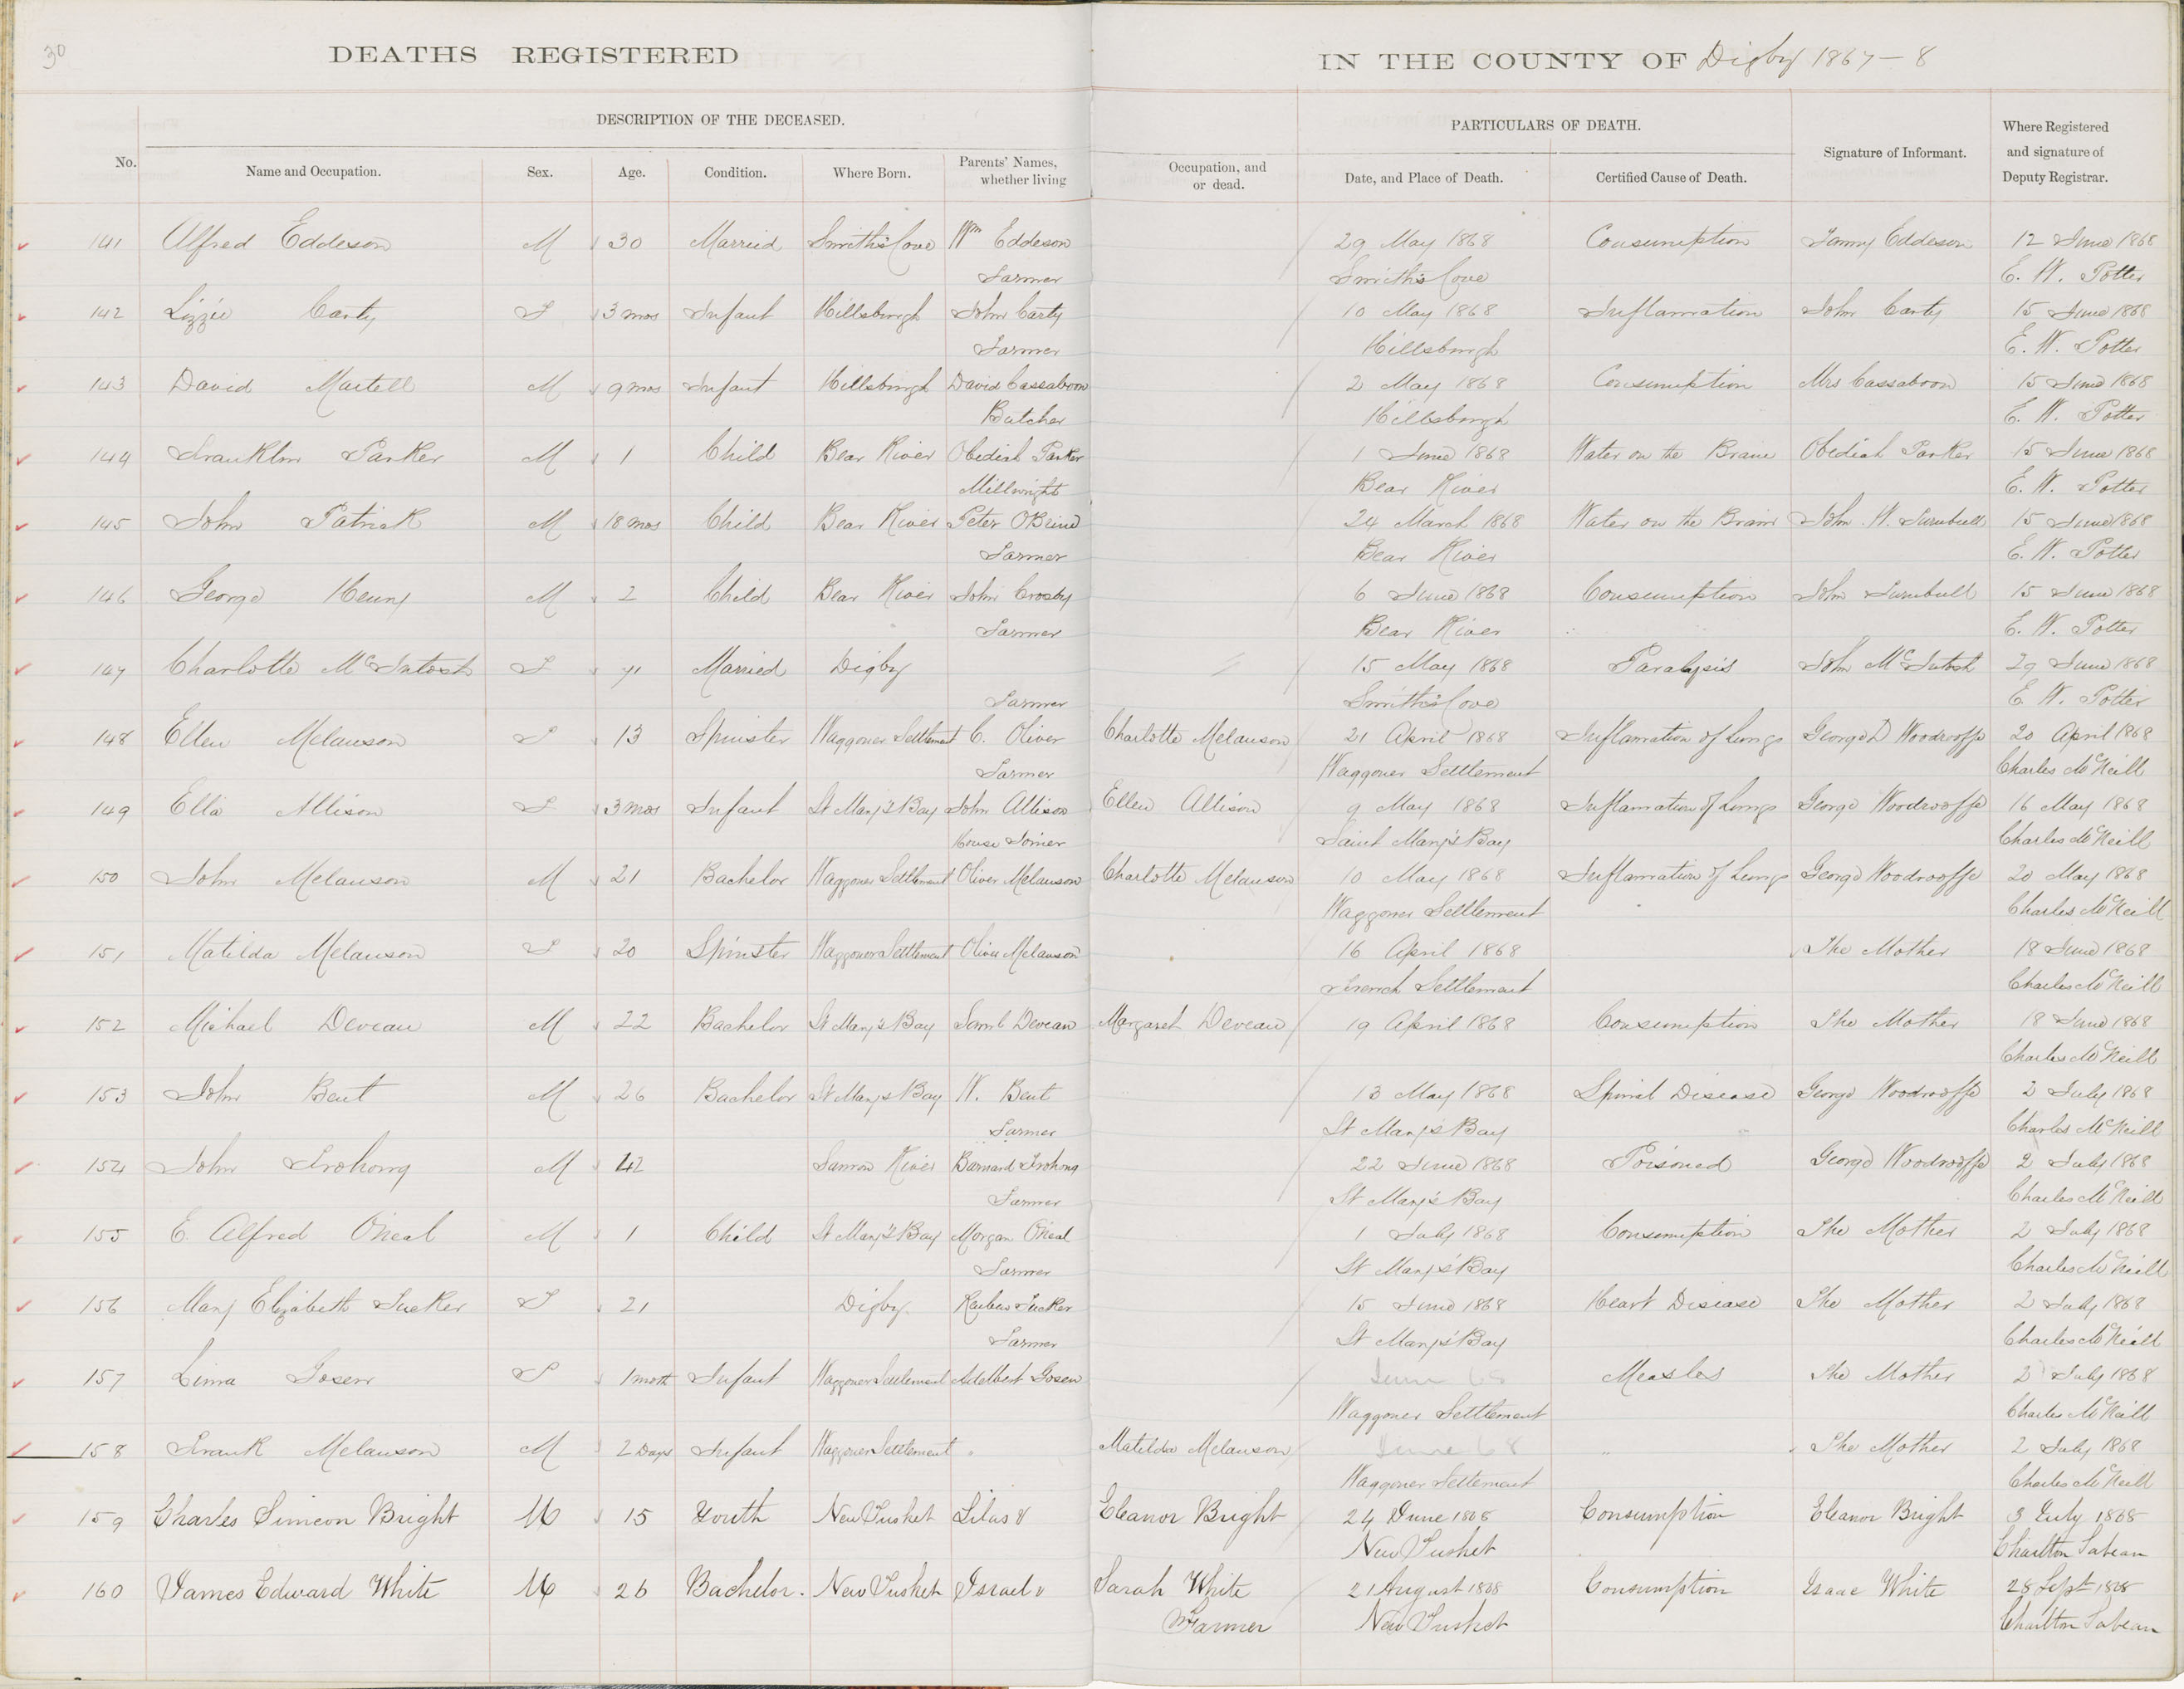 30
DEATHS REGISTERED IN THE COUNTY OF Digby 1867-8
DESCRIPTION OF THE DECEASED. PARTICULARS OF DEATH.
No. Name and Occupation. Sex. Age. Condition. Where Born. Parents' Names, whether living Occupation, and or dead. Date, and Place of Death. Certified Cause of Death. Signature of Informant. Where Registered and signature of Deputy Registrar.
141 Alfred Eddeson M 30 Married Smith's Cove Wm Eddeson 29 May 1868 Consumption Fanny Eddeson 12 June 1868
Farmer Smith's Cove E. W. Potter
142 Lizzie Carty F 3 mos Infant Hillsburgh John Carty 10 May 1868 Inflamation John Carty 15 June 1868
Farmer Hillsburgh E. W. Potter
143 David Martell M 9 mos Infant Hillsburgh David Cassaboon 2 May 1868 Consumption Mrs Cassaboon 15 June 1868
Butcher Hillsburgh E. W. Potter
144 Franklin Parker M 1 Child Bear River Obediah Parker 1 June 1868 Water on the Brain Obediah Parker 15 June 1868
Millwright Bear River E. W. Potter
145 John Patrick M 18 mos Child Bear River Peter OBrine 24 March 1868 Water on the Brain John W. Turnbull 15 June 1868
Farmer Bear River E. W. Potter
146 George Henry M 2 Child Bear River John Crosby 6 June 1868 Consumption John Turnbull 15 June 1868
Farmer Bear River E. W. Potter
147 Charlotte McIntosh F 71 Married Digby 15 May 1868 Paralysis John McIntosh 29 June 1868
Farmer Smith's Cove E W. Potter
148 Ellen Melanson F 13 Spinster Waggoner Settlement C. Oliver Charlotte Melanson 21 April 1868 Inflamation of Lungs George D Woodrooffe 20 April 1868
Farmer Waggoner Settlement Charles McNeill
149 Ella Allison F 3 mos Infant St Mary's Bay John Allison Ellen Allison 9 May 1868 Inflamation of Lungs George Woodrooffe 16 May 1868
House Joiner Saint Mary's Bay Charles McNeill
150 John Melanson M 21 Bachelor Waggoner Settlement Oliver Melanson Charlotte Melanson 10 May 1868 Inflamation of Lungs George Woodrooffe 20 May 1868
Waggoner Settlement Charles McNeill
151 Matilda Melanson F 20 Spinster Waggoner Settlement Oliver Melanson 16 April 1868 The Mother 18 June 1868
French Settlement Charles McNeill
152 Michael Deveau M 22 Bachelor St Mary's Bay Saml Deveau Margaret Deveau 19 April 1868 Consumption The Mother 18 June 1868
Charles McNeill
153 John Bent M 26 Bachelor St Mary's Bay W. Bent 13 May 1868 Spinal Disease George Woodrooffe 2 July 1868
Farmer St Mary's Bay Charles McNeill
154 John Frohong M 42 River Barnard Frohong 22 June 1868 Poisoned George Woodrooffe 2 July 1868
Farmer St Mary's Bay Charles McNeill
155 E. Alfred O'neal M 1 Child St Mary's Bay Morgan O'neal 1 July 1868 Consumption The Mother 2 July 1868
Farmer St Mary's Bay Charles McNeill
156 Mary Elizabeth Tucker F 21 Digby. Reuben Tucker 15 June 1868 Heart Disease The Mother 2 July 1868
Farmer St Mary's Bay Charles McNeill
157 Lima Gosen F 1 month Infant Waggoner Settlement Adelbert Gosen June 68 Measles The Mother 2 July 1868
Waggoner Settlement Charles McNeill
158 Frank Melanson M 2 Days Infant Waggoner Settlement Matilda Melanson June 68 " The Mother 2 July 1868
Waggoner Settement Charles McNeill
159 Charles Simeon Bright M 15 Youth New Tusket Silas & Eleanor Bright 24 June 1868 Consumption Eleanor Bright 3 July 1868
New Tusket Charlton Sabean
160 James Edward White M 26 Bachelor. New Tusket Israel & Sarah White 21 August 1868 Consumption Isaac White 28 Sept 1868
Farmer New Tusket Charlton Sabean